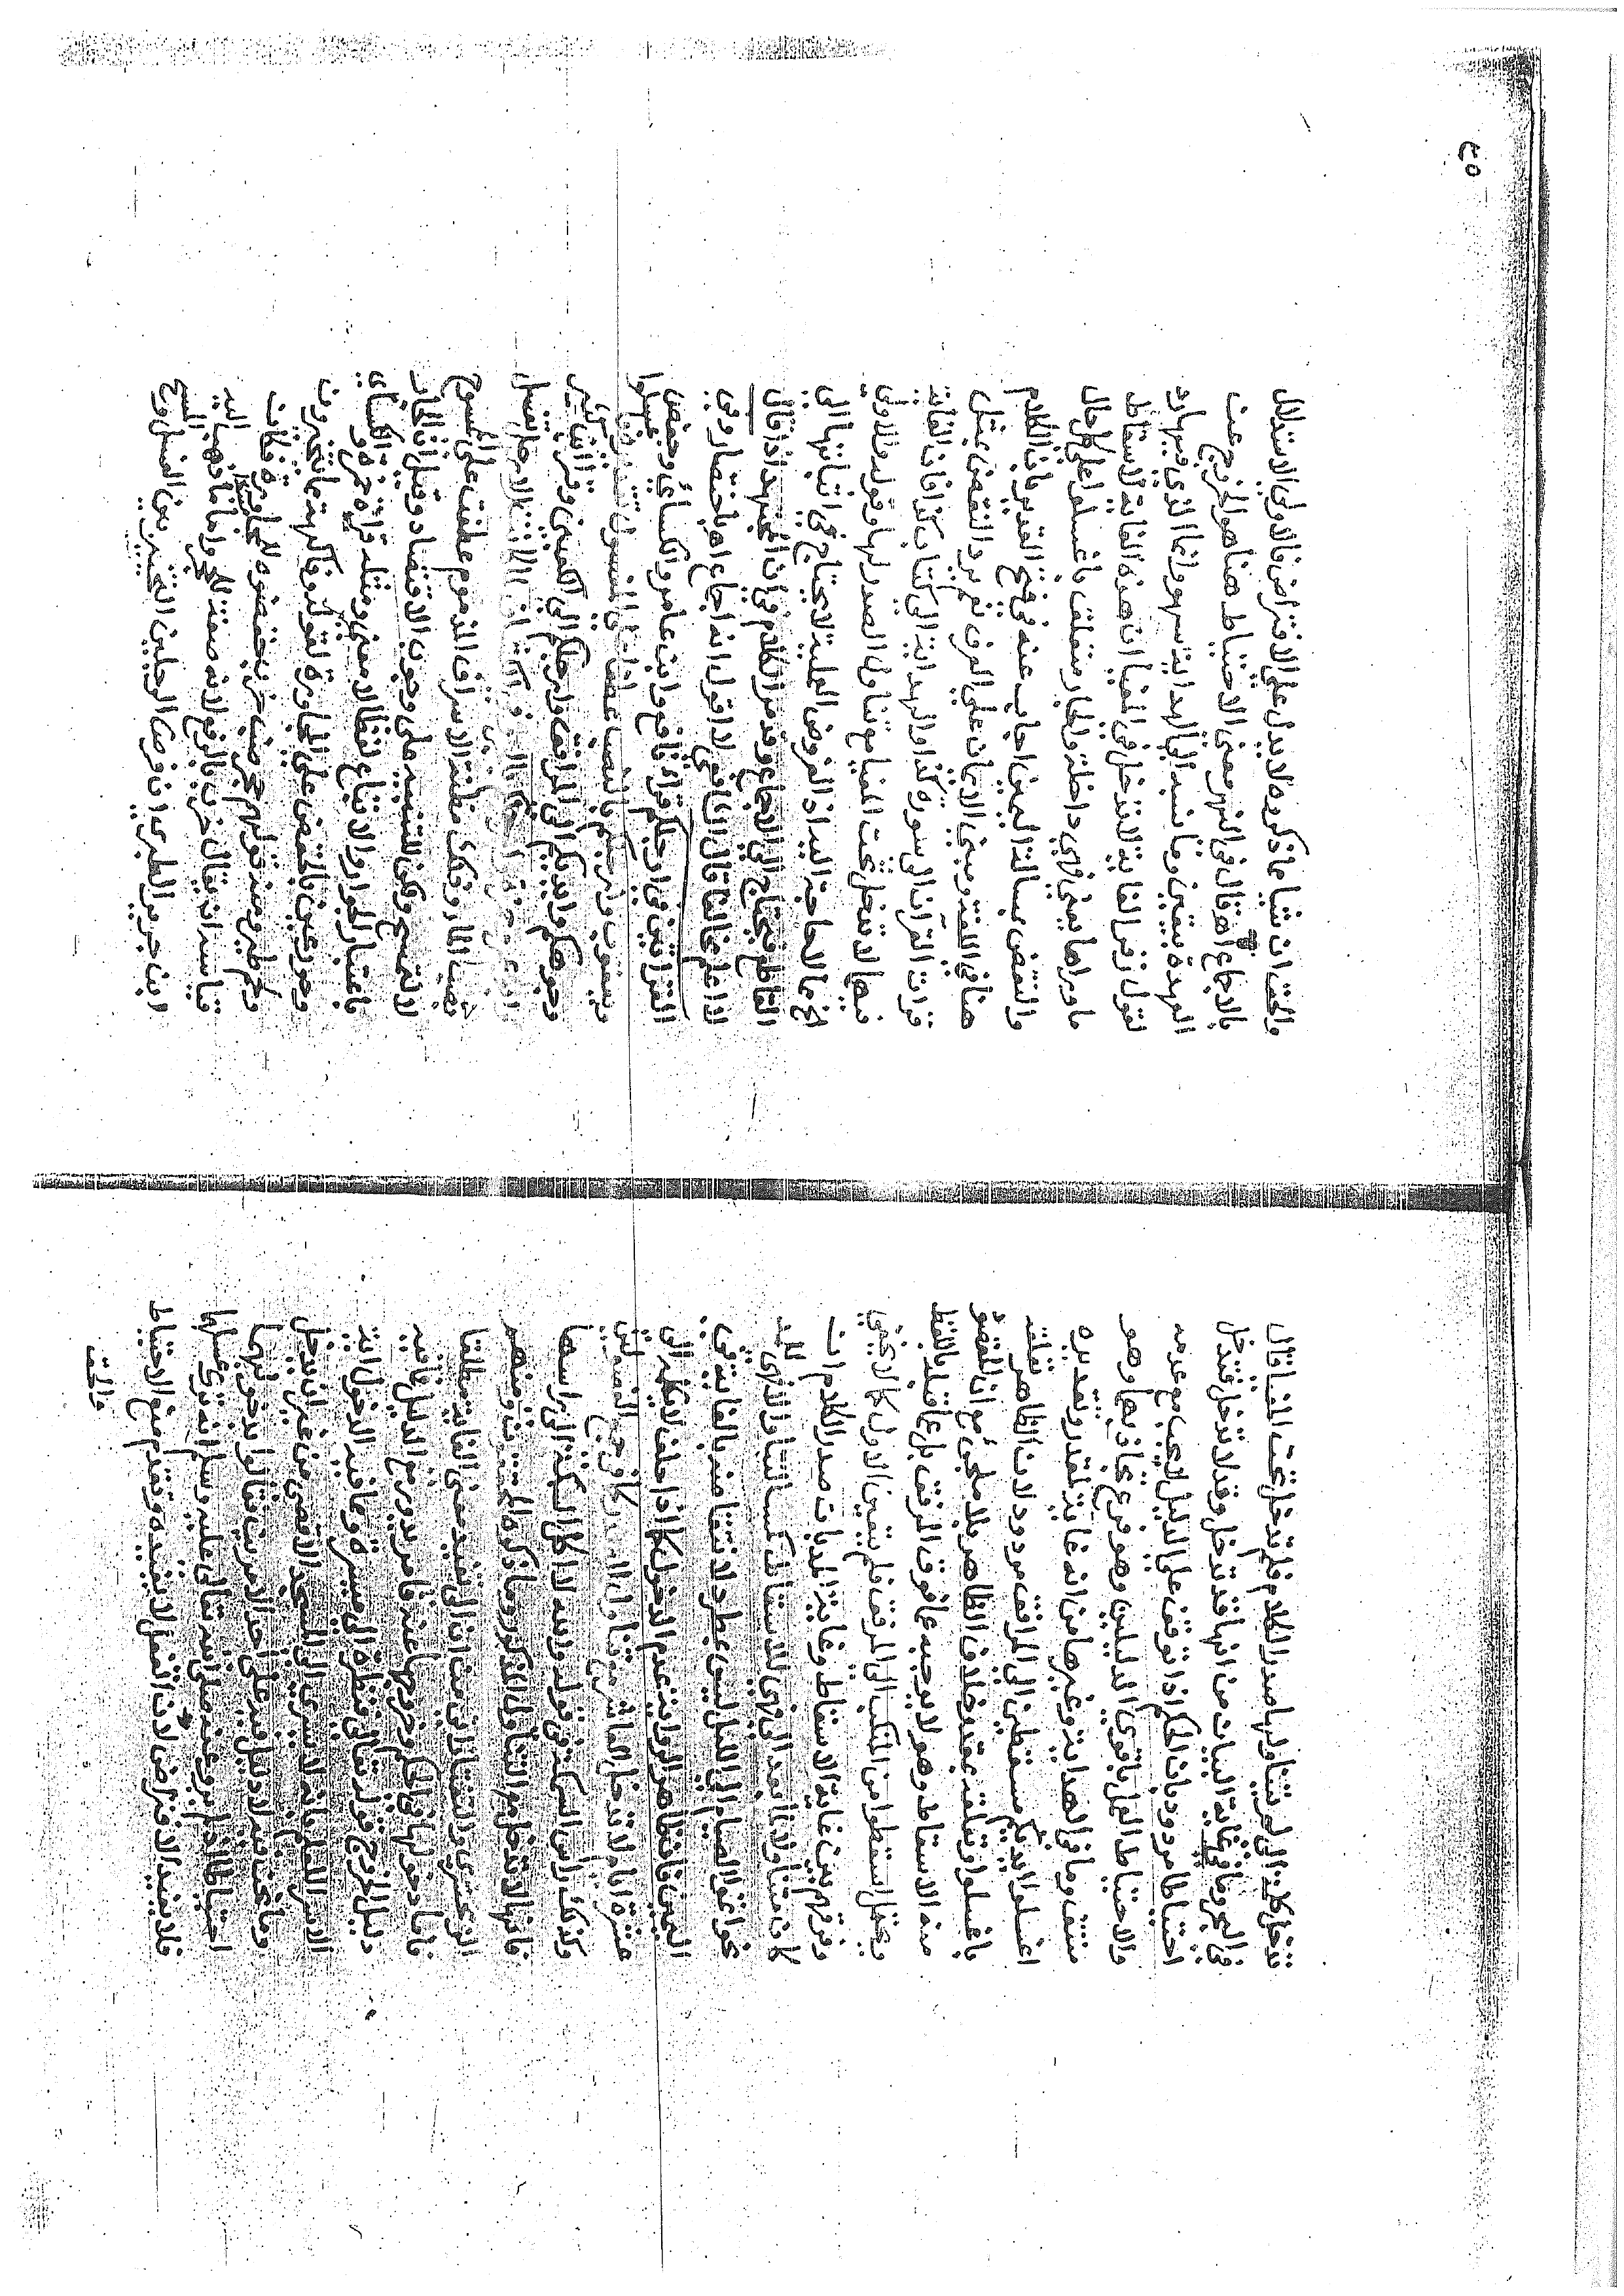 فتدخل كلمة الى لم يتناولها صدر الكلام فلم تدخل تحت المغيا قال
في البحر وما في غاية البيان من انها قد تدخل وقد لا تدخل فتدخل
احتياطا مردود بان الحكم اذا توقف على الدليل لا يجب مع عدمه
والاحتياط العمل باقوى الدليلين وهو فرع تجاذبهما وهو
منتف وما في الهداية وغيرها من انه غاية لمقدر وتقديره
اغسلوا ايديكم مسقطين الى المرافق مردود لان الظاهر تعلقه
باغسلوا وتعلقه بمقدر خلاف الظاهر بلا ملجئ مع ان المقصود
منه الاسقاط وهو لا يوجبه عما فوق المرفق بل عما قبله باللفظ
ويحتمل اسقطوا من المنكب الى المرفق فلم يتعين الاول كما لا يخفى
وفرقهم بين غاية الاسقاط وغاية المد بان صدر الكلام ان
كان متناولا لما بعد الى فهي للاسقاط كمسئلتنا والا فهي للمد
نحو اتموا الصيام الى الليل ليس بمطرد لانتقاضه بالغاية في
اليمين فان ظاهر الرواية عدم الدخول كما اذا حلف لا يكلمه الى
عشرة ايام لا تدخل العاشر مع تناول الصدر
وكذلك راس السمكة في قوله والله لا آكل السمكة الى راسها
فانها لا تدخل مع التناول المذكور وما ذكره المحققون ومنهم
الزمخشري والتفتازاني من ان الى تفيد معنى الغاية مطلقا
فاما دخولها في الحكم وخروجها عنه فامر يدور مع الدليل فما فيه
دليل الخروج قوله تعالى فنظرة الى ميسرة ومما فيه الدخول آية
الاسرى للعلم بانه لا يسرى به الى المسجد الاقصى من غير ان يدخل
وما نحن فيه لا دليل فيه على احد الامرين فقالوا بدخولهما
احتياطا لانه لم يرو عنه صلى الله تعالى عليه وسلم انه ترك غسلهما
فلا يفيد الافتراض لان الفعل لا يفيده وتقدم منع الاحتياط
والحق
٢٥
والحق ان شيئا مما ذكروه لا يدل على الافتراض فالاولى الاستدلال
بالاجماع اهـ قال في النهر معنى الاحتياط هنا هو الخروج عن
العهدة بيقين وما نسبه الى الهداية سهو وانما الذي فيها رد
لقول زفر الغاية لا تدخل في المغيا ان هذه الغاية لاسقاط
ما وراها يعني فهي داخلة والجار متعلق باغسلوا على كل حال
والنقض بمسالة اليمين اجاب عنه في فتح القدير بان الكلام
هنا في اللغة ومبنى الايمان على العرف نعم يرد النقض بمثل
قرات القرآن الى سورة كذا والهداية الى كتاب كذا فان الغاية
فيها لا تدخل تحت المغيا مع تناول الصدر لها وقوله فالاولى
الخ مما لا حاجة اليه اذ الفروض العملية لا يحتاج في اثباتها الى
القاطع فيحتاج الى الاجماع وقد مر الكلام في ان المجتهد اذا قال
لا اعلم مخالفا قال الشافعي لا اقول انه اجماع اهـ باختصار وفي
القراءتين في ارجلكم قرأ نافع وابن عامر والكسائي وحفص
ويعقوب وارجلكم بالنصب عطفا على المغسول تقديره فاغسلوا
وجوهكم وايديكم الى المرافق وارجلكم الى الكعبين وقرأ ابن كثير
نصب الماء وكان مظنة الاسراف المذموم عطفت على الممسوح
لا لتمسح ولكن للتنبيه على وجوب الاقتصاد وقيل ان الجار
باعتبار الجوار والاتباع لفظا لا معنى ومثله قراءة حمزة والكسائي
وحور عين بالخفض على المجاورة لقوله وفاكهة مما يتخيرون
ولحم طير ومنه قولهم جحر ضب خرب بخفضوه للمجاورة فكانت
قياسه ان يقال خرب بالرفع لانه صفة للجحر واما ما ذهب اليه
ابن جرير الطبري ان فرض الرجلين التخيير بين الغسل والمسح